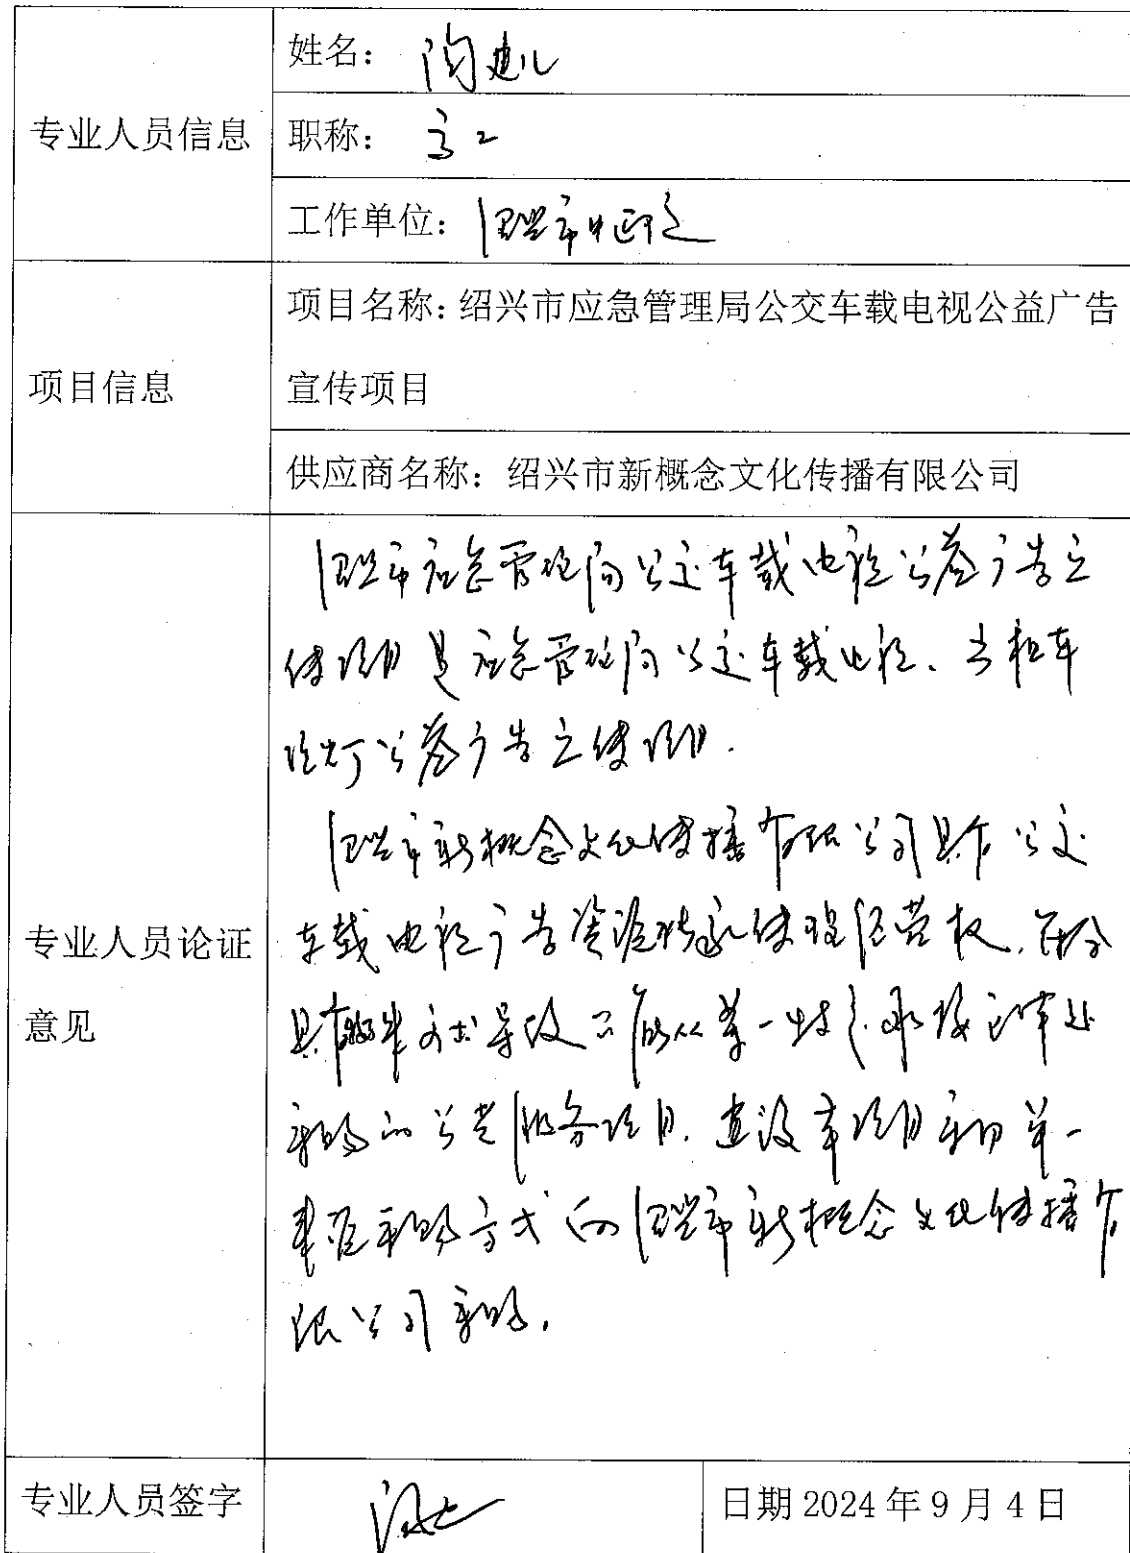 专业人员信息
姓名：陶建儿
职称：高工
工作单位：绍兴市
项目信息
项目名称：绍兴市应急管理局公交车载电视公益广告
宣传项目
供应商名称：绍兴市新概念文化传播有限公司
专业人员论证
意见
绍兴市应急管理局公交车载电视公益广告宣
传项目是应急管理局公交车载电视、出租车
顶灯公益广告宣传项目.
绍兴市新概念文化传播有限公司具有公交
车载电视广告资源独家经营权,
只能从单一
采购的公共服务项目.建议本项目采用单一
来源采购方式向绍兴市新概念文化传播有
限公司采购.
专业人员签字
日期 2024 年 9 月 4 日